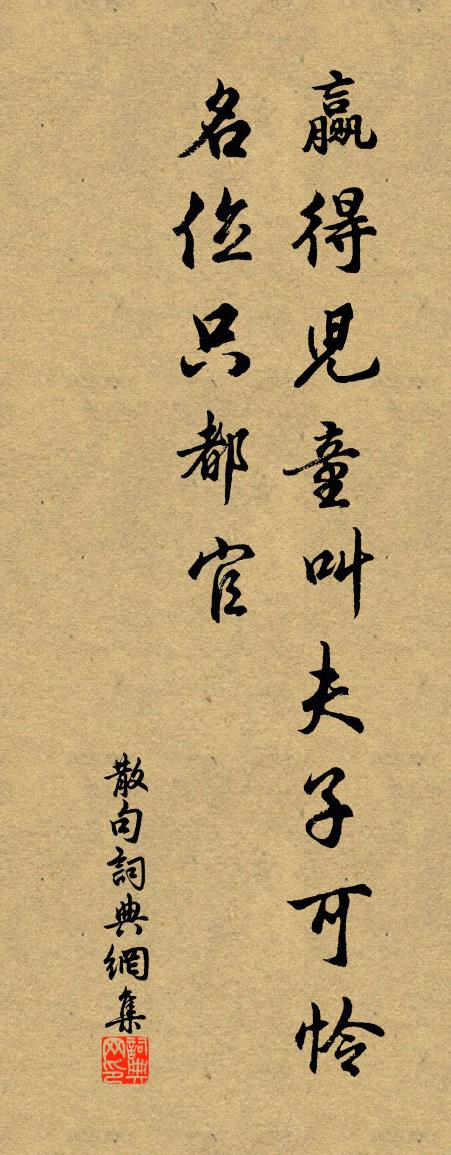 贏得児童叫夫子可怜
名位只都官
散句詞典網集
詞典网印